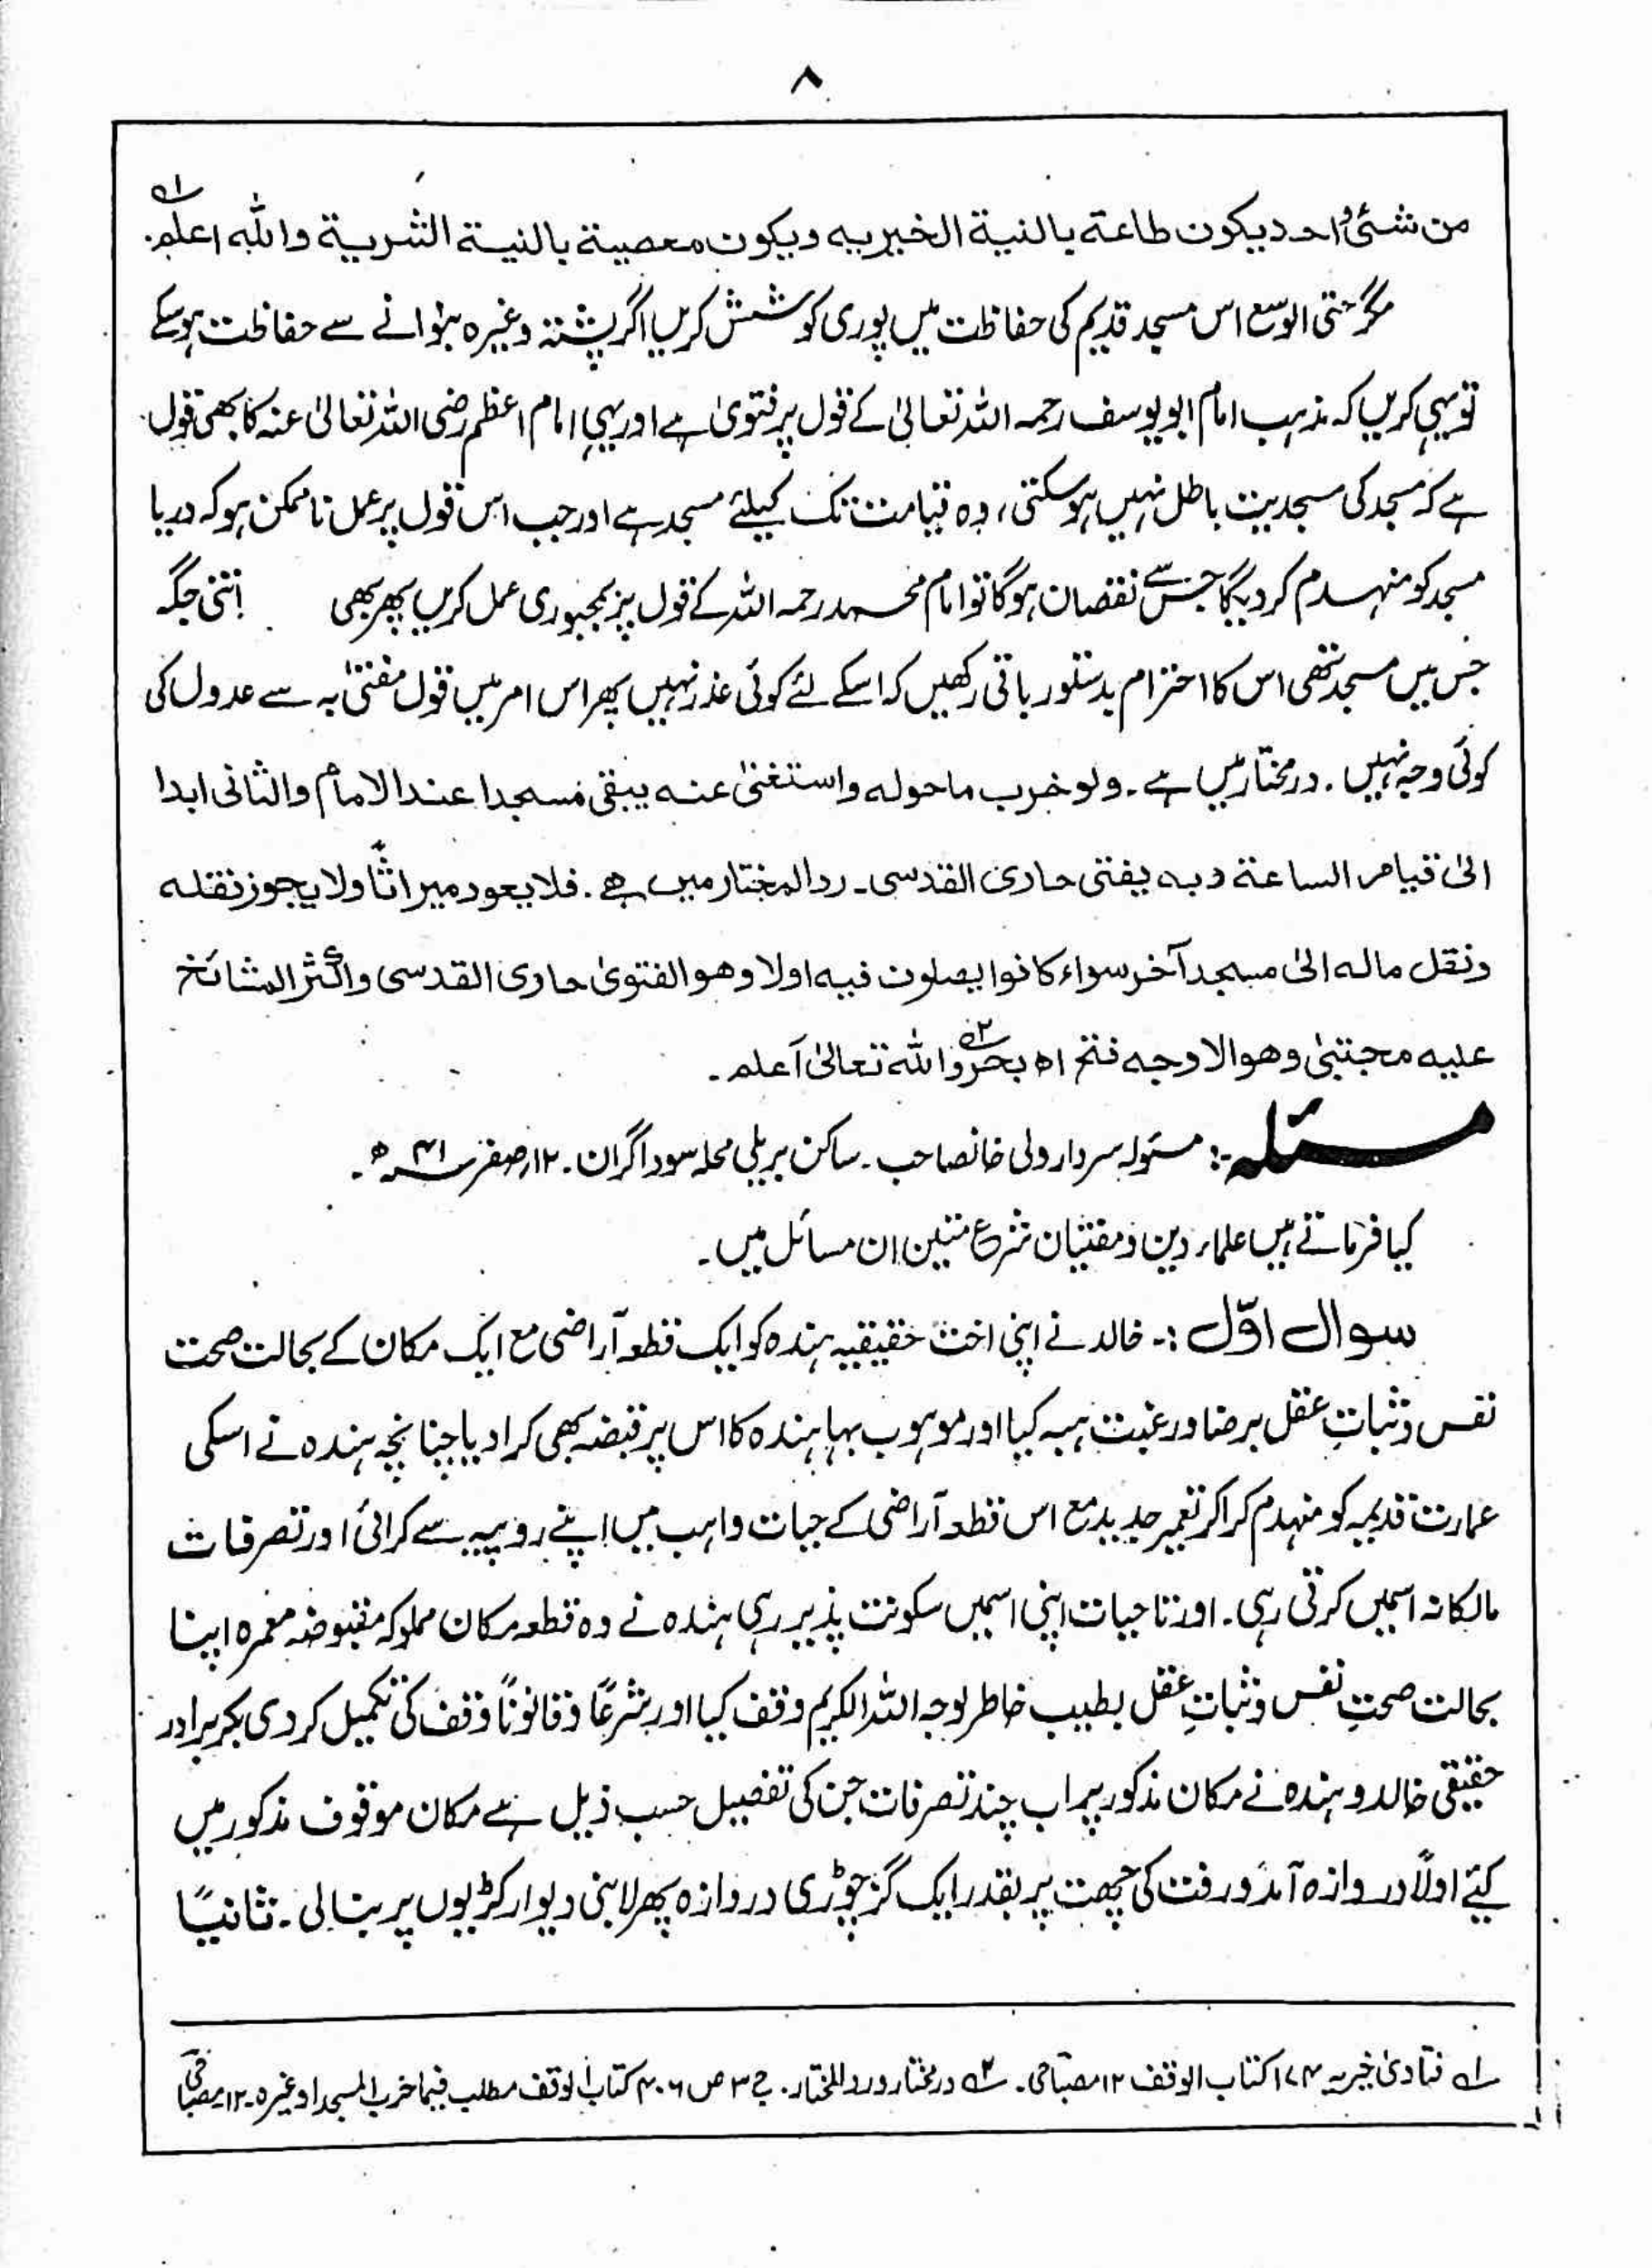 ۸
من شئی واحد یکون طاعة بالنیة الخیریه ویکون معصیة بالنیة الشریة واللہ اعلم. ؎۱
مگر حتی الوسع اس مسجد قدیم کی حفاظت میں پوری کوشش کریں اگر پشتہ وغیرہ بنوانے سے حفاظت ہوسکے
تو یہی کریں کہ مذہب امام ابویوسف رحمہ اللہ تعالیٰ کے قول پر فتویٰ ہے اور یہی امام اعظم رضی اللہ تعالیٰ عنہ کا بھی قول
ہے کہ مسجد کی مسجدیت باطل نہیں ہوسکتی، وہ قیامت تک کیلئے مسجد ہے اور جب اس قول پر عمل ناممکن ہو کہ دریا
مسجد کو منہدم کردیگا جس سے نقصان ہوگا تو امام محمد رحمہ اللہ کے قول پر بمجبوری عمل کریں پھر بھی اتنی جگہ
جس میں مسجد تھی اس کا احترام بدستور باقی رکھیں کہ اسکے لئے کوئی عذر نہیں پھر اس امر میں قول مفتیٰ بہ سے عدول کی
کوئی وجہ نہیں . درمختار میں ہے ۔ ولو خرب ماحوله واستغنیٰ عنه یبقی مسجدا عند الامام والثانی ابدا
الیٰ قیام الساعة وبه یفتی حاوی القدسی ۔ ردالمختار میں ہے . فلا یعود میراثًا ولا یجوز نقله
ونقل ماله الیٰ مسجد آخر سواء کانوا یصلون فیه اولا وهو الفتویٰ حاوی القدسی واکثر المشائخ
علیه مجتبیٰ وهو الاوجه فتح اه بحر ؎۲ واللہ تعالیٰ اعلم ۔
مسئلہ :۔ مسئولہ سردار ولی خانصاحب ۔ ساکن بریلی محلہ سوداگران ۔ ۱۲؍صفر ۴۱ھ ۔
کیا فرماتے ہیں علماء دین ومفتیان شرع متین ان مسائل میں ۔
سوال اوّل :۔ خالد نے اپنی اخت حقیقیہ ہندہ کو ایک قطعہ آراضی مع ایک مکان کے بحالت صحت
نفس وثباتِ عقل برضا ورغبت ہبہ کیا اور موہوب بہا ہندہ کا اس پر قبضہ بھی کرادیا چنانچہ ہندہ نے اسکی
عمارت قدیمہ کو منہدم کراکر تعمیر جدید مع اس قطعہ آراضی کے حیات واہب میں اپنے روپیہ سے کرائی اور تصرفات
مالکانہ اسمیں کرتی رہی ۔ اور تا حیات اپنی اسمیں سکونت پذیر رہی ہندہ نے وہ قطعہ مکان مملوکہ مقبوضہ معمرہ اپنا
بحالت صحتِ نفس وثباتِ عقل بطیب خاطر لوجہ اللہ الکریم وقف کیا اور شرعًا وقانونًا وقف کی تکمیل کردی بکر برادر
حقیقی خالد و ہندہ نے مکان مذکور پر اب چند تصرفات جن کی تفصیل حسب ذیل ہے مکان موقوف مذکور میں
کئے اولاً دروازہ آمد ورفت کی چھت پر بقدر ایک گز چوڑی دروازہ پھر لابنی دیوار کڑیوں پر بنالی ۔ ثانیًا
؎۱ فتاویٰ خیریہ ۱۷۴ کتاب الوقف ۱۲ مصباحی ۔ ؎۲ درمختار وردالمحتار . ج ۳ ص ۴۰۶ کتاب الوقف مطلب فیما خرب المسجد اوغیرہ ۔ ۱۲ مصباحی